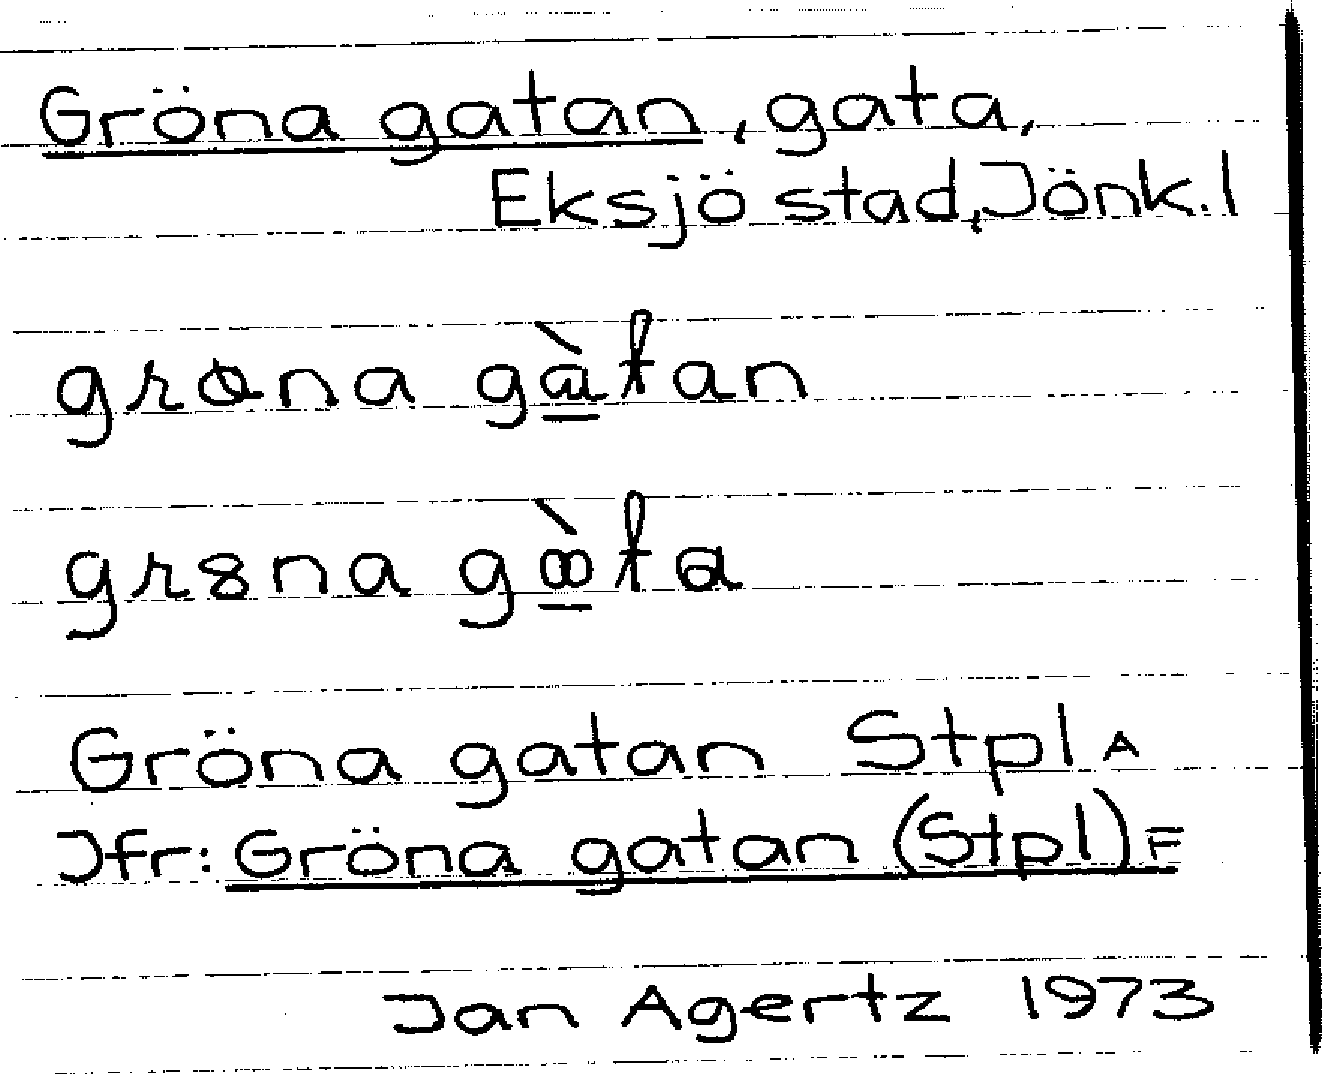 Gröna gatan, gata,
Eksjö stad, Jönk. l
grøna gàtan
gr8na gòta
Gröna gatan Stpl A
Jfr: Gröna gatan (Stpl) F
Jan Agertz 1973